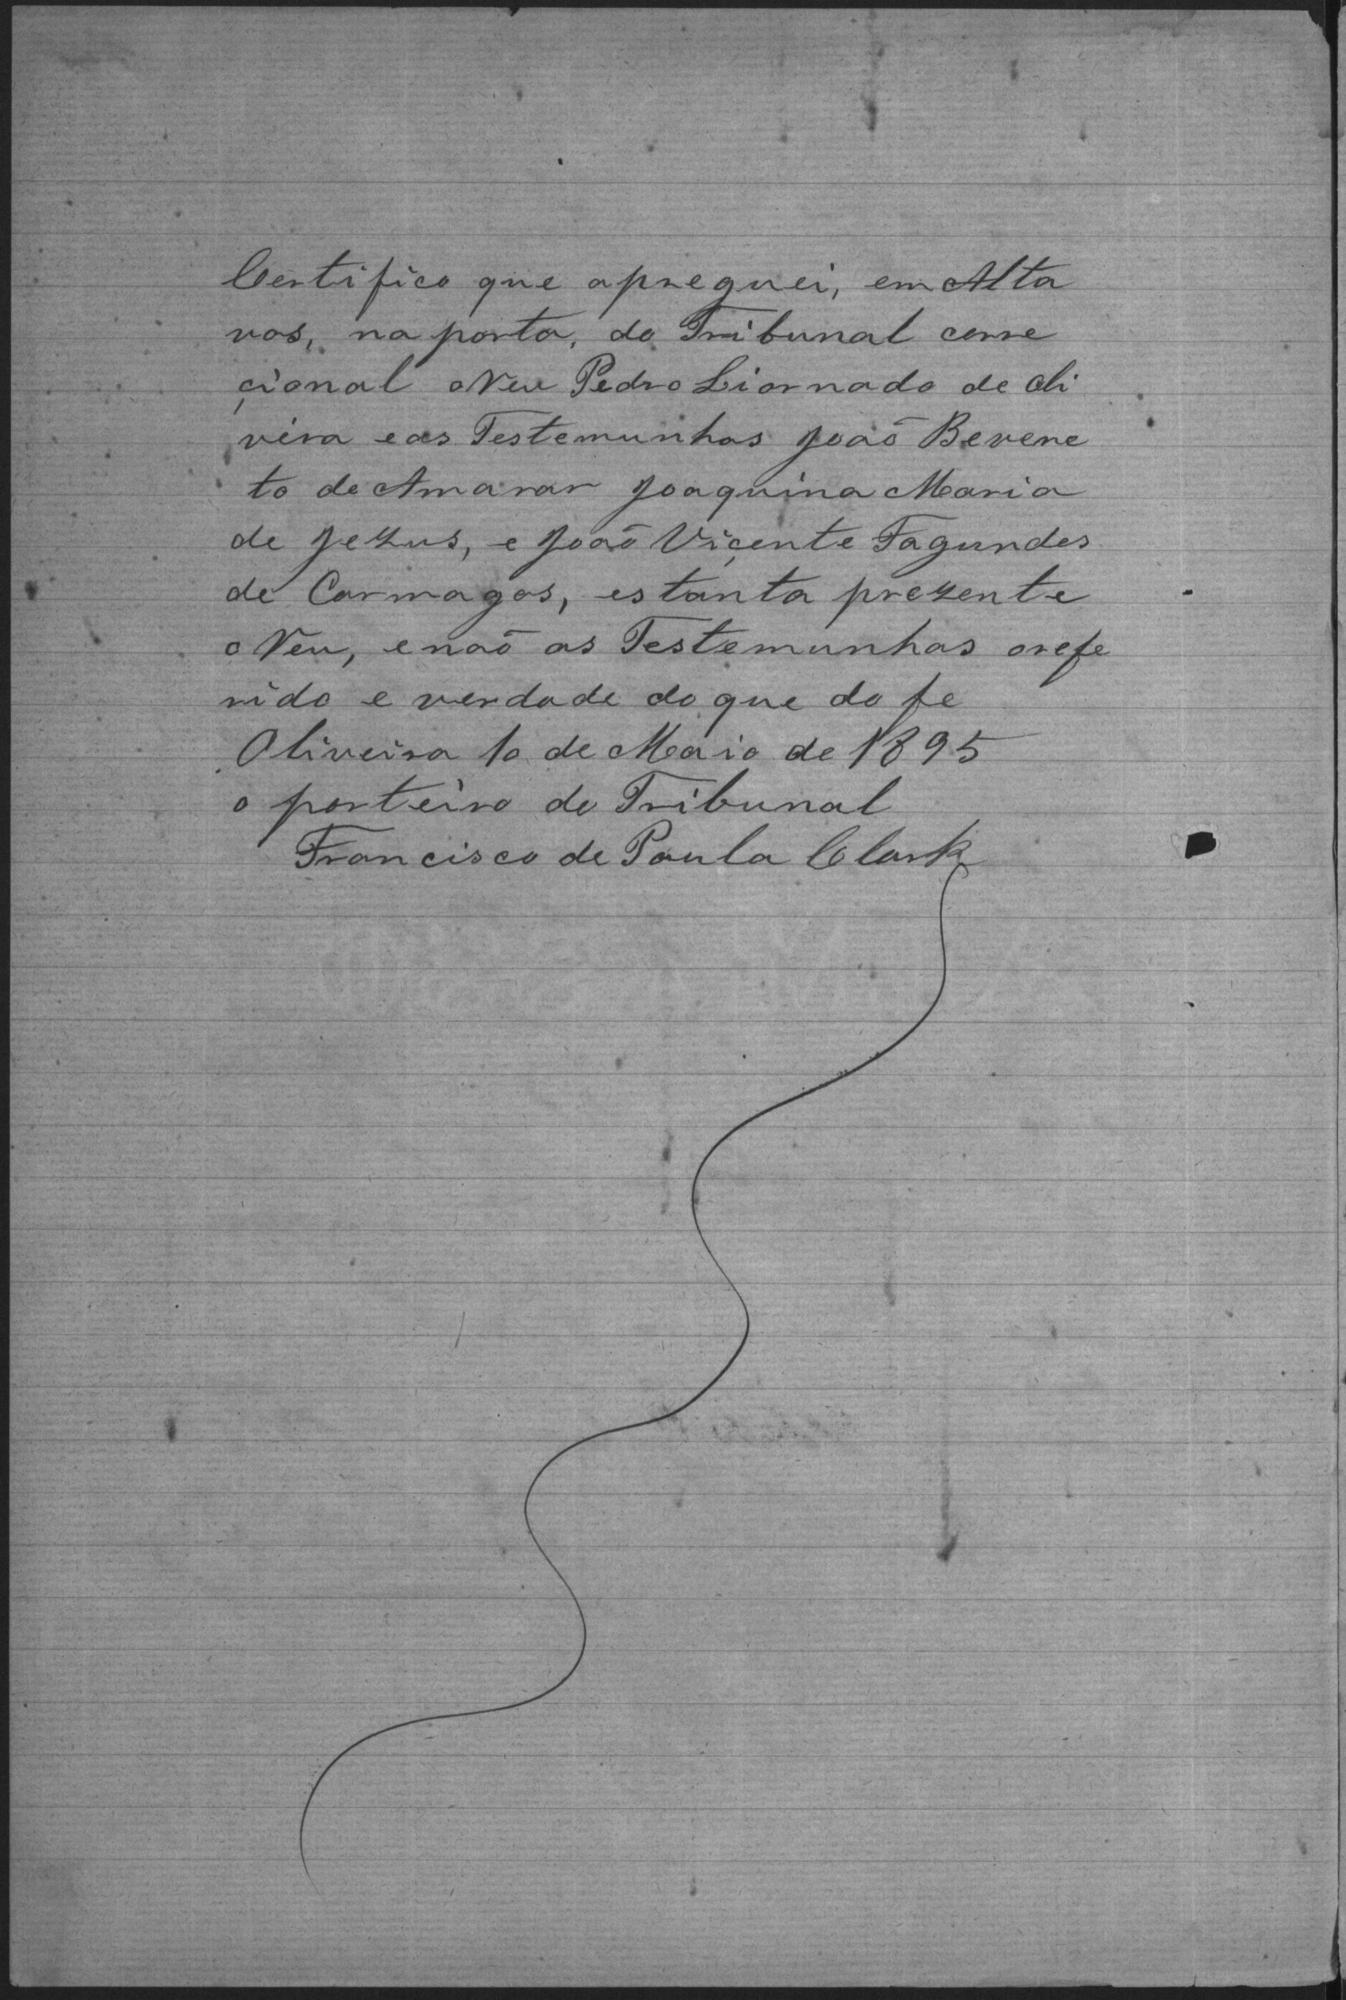 Certifico que apreguei, em Alta
vos, na porta, do Tribunal corre
çional o Reu Pedro Liornado de Oli
veira e as Testemunhas João Bevene
to de Amarar Joaquina Maria
de Jezus, e João Viçente Fagundes
de Carmagos, estanta prezente
o Reu, e naõ as Testemunhas orefe
rido e verdade do que do fe
Oliveira 10 de Maio de 1895
o porteiro do Tribunal
Francisco de Paula Clark